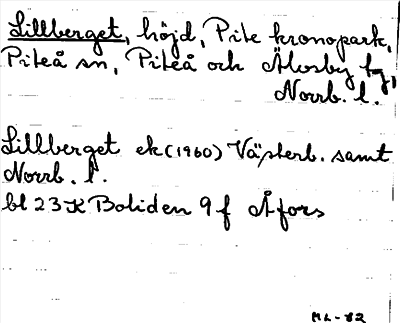 Lillberget, höjd, Pite kronopark,
Piteå sn, Piteå och Älvsby tg,
Norrb. l.
Lillberget ek (1960) Västerb. samt
Norrb. l.
bl 23 K Boliden 9 f Åfors
ML-82